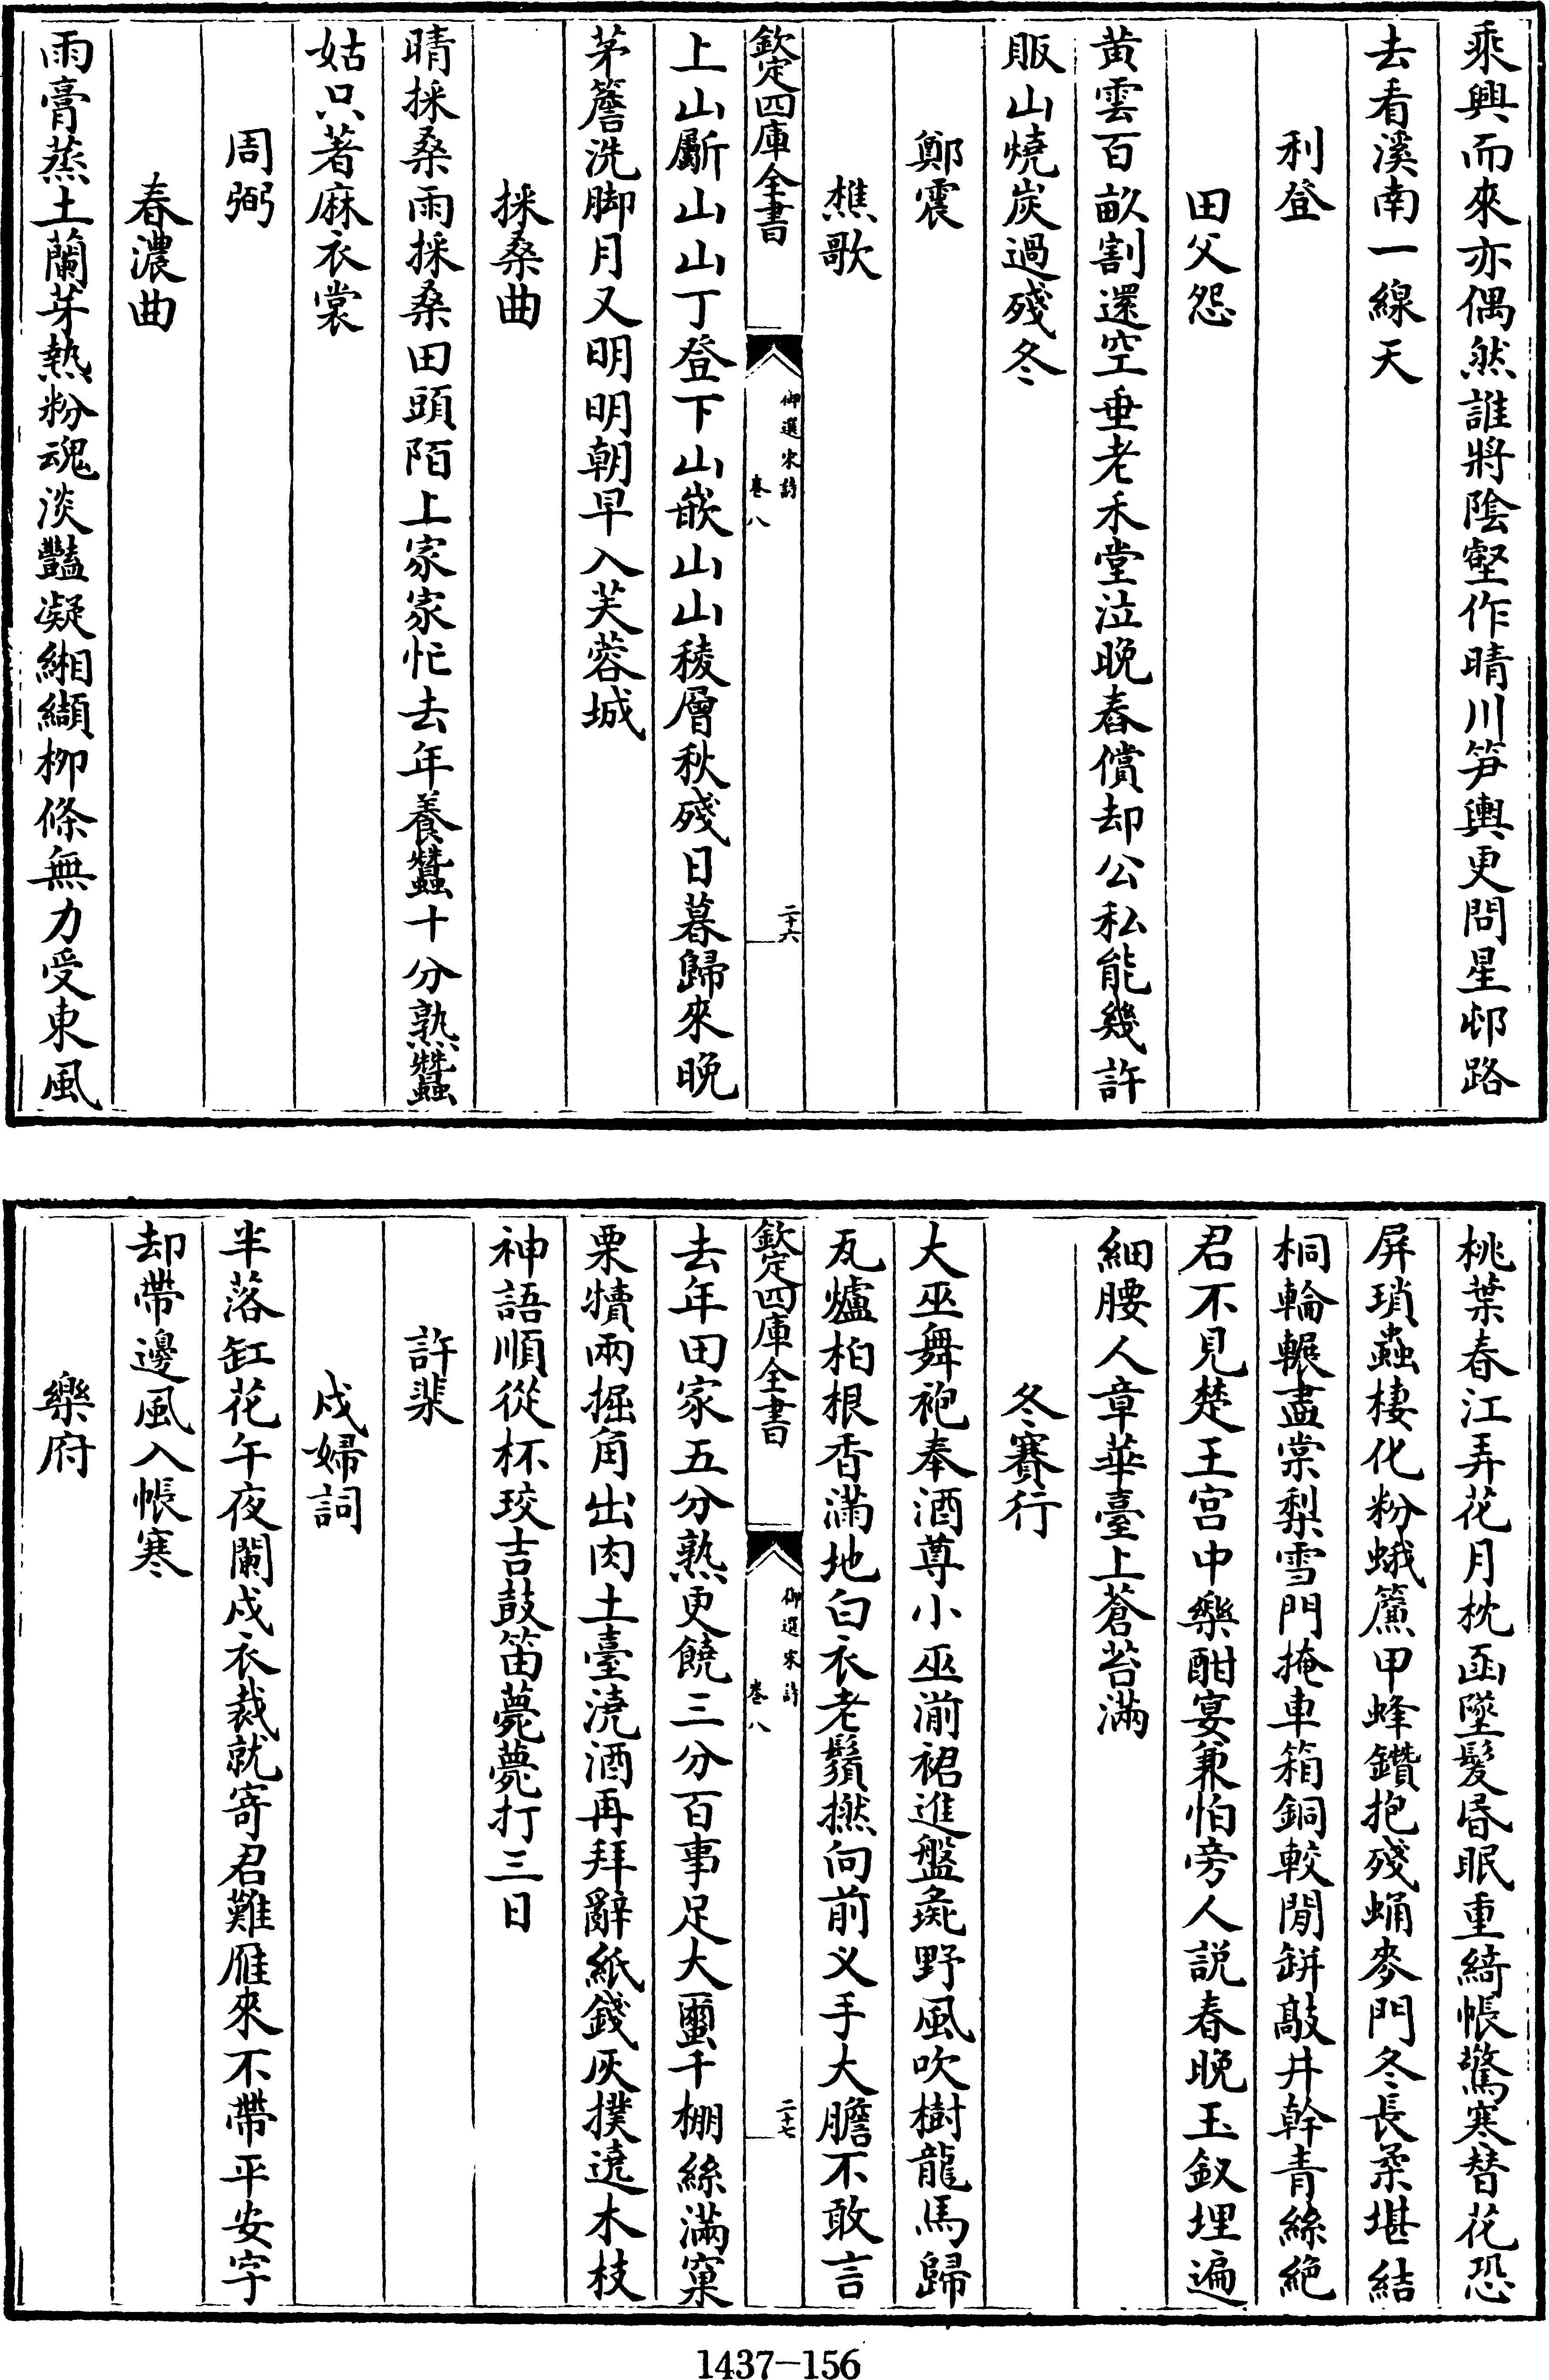 乘興而來亦偶然誰將陰壑作晴川笋輿更問星邨路
去看溪南一線天
利登
田父怨
黄雲百畝割還空垂老禾堂泣晚舂償却公私能幾許
販山燒炭過殘冬
鄭震
樵歌
欽定四庫全書
御選宋詩
卷八
二十六
上山斸山山丁登下山嵌山山稜層秋殘日暮歸來晚
茅簷洗脚月又明明朝早入芙蓉城
採桑曲
晴採桑雨採桑田頭陌上家家忙去年養蠶十分熟蠶
姑只著麻衣裳
周弼
春濃曲
雨膏蒸土蘭芽熱粉魂淡豔凝緗纈柳條無力受東風
桃葉春江弄花月枕函墜髮昏眠重綺帳驚寒替花恐
屏瑣蟲棲化粉蛾簾甲蜂鑽抱殘蛹麥門冬長柔堪結
桐輪輾盡棠梨雪門掩車箱銅較閒缾敲井幹青絲絶
君不見楚王宫中樂酣宴兼怕旁人説春晚玉釵埋遍
細腰人章華臺上蒼苔滿
冬賽行
大巫舞袍奉酒尊小巫湔裙進盤飱野風吹樹龍馬歸
瓦爐柏根香滿地白衣老鬚撚向前义手大膽不敢言
欽定四庫全書
御選宋詩
卷八
二十七
去年田家五分熟更饒三分百事足大蠒千棚絲滿窠
栗犢兩掘角出肉土臺澆酒再拜辭紙錢灰撲遶木枝
神語順從杯珓吉鼓笛薨薨打三日
許棐
戍婦詞
半落缸花午夜闌戍衣裁就寄君難雁來不帶平安字
却帶邊風入帳寒
樂府
1437-156